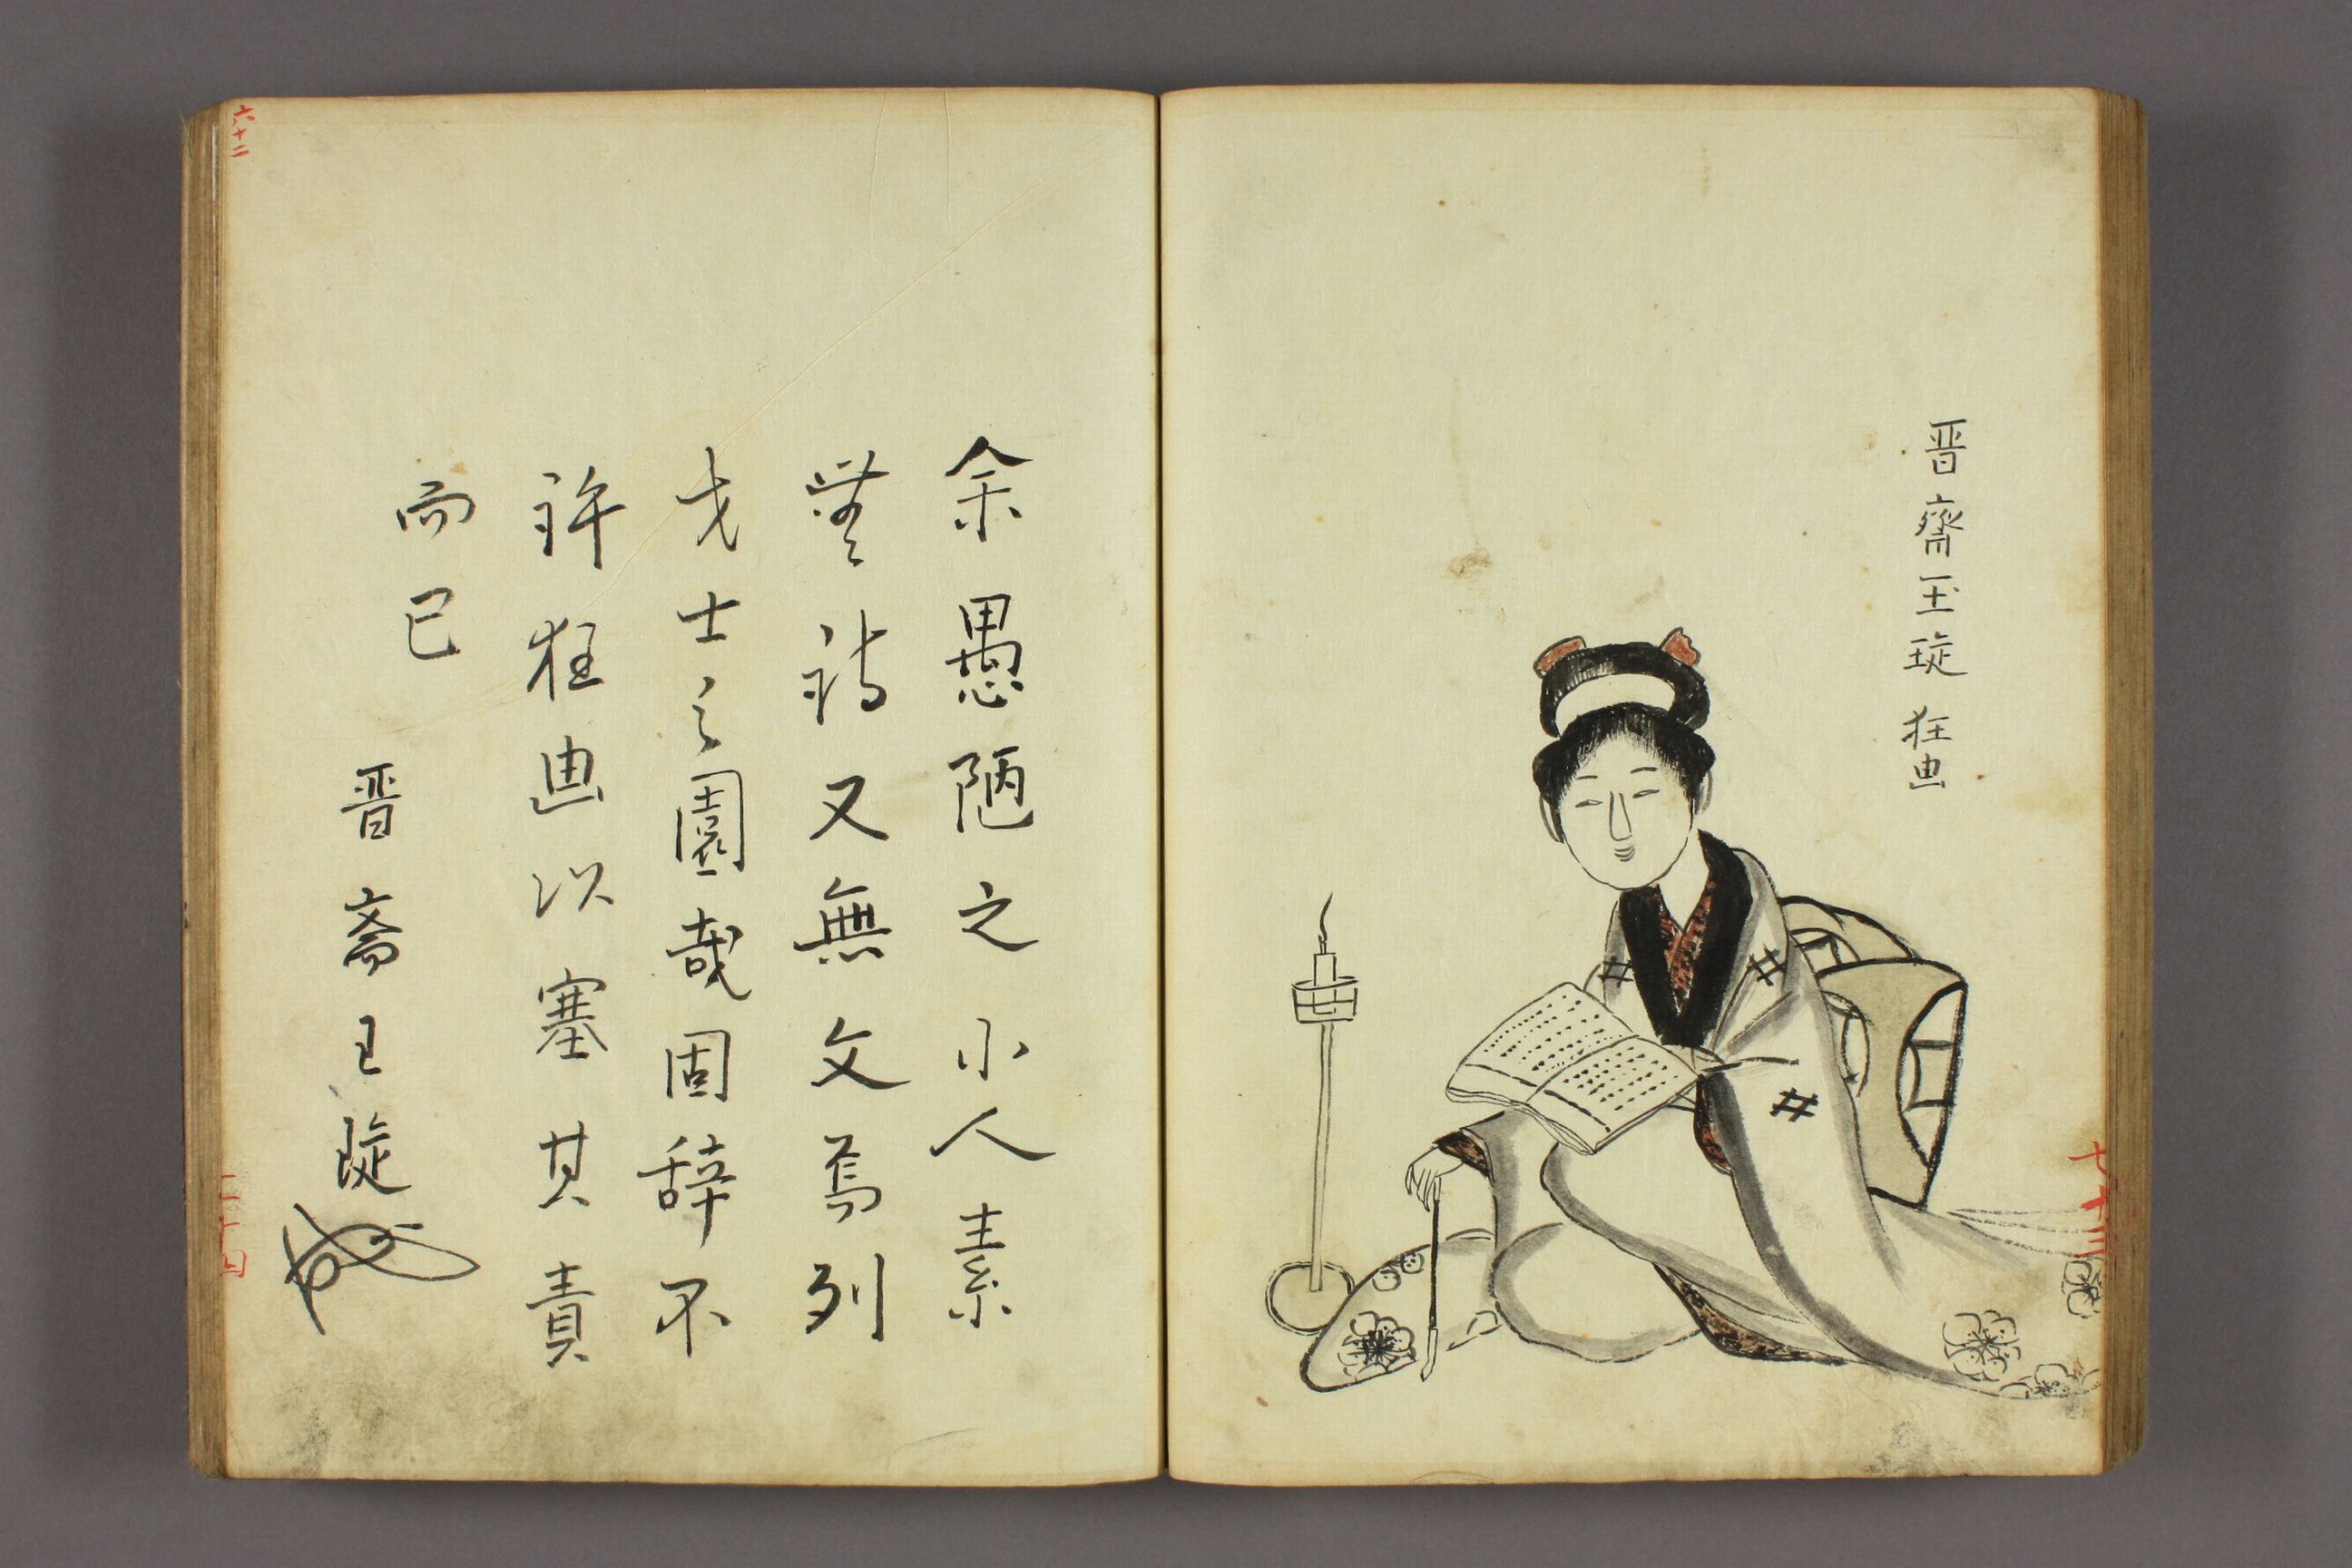 晋齋玉琁狂画
七十三
余愚陋之小人素
無詩又無文焉列
才士之園哉固辞不
許狂画以塞其責
而已
晋斎玉琁
六十二